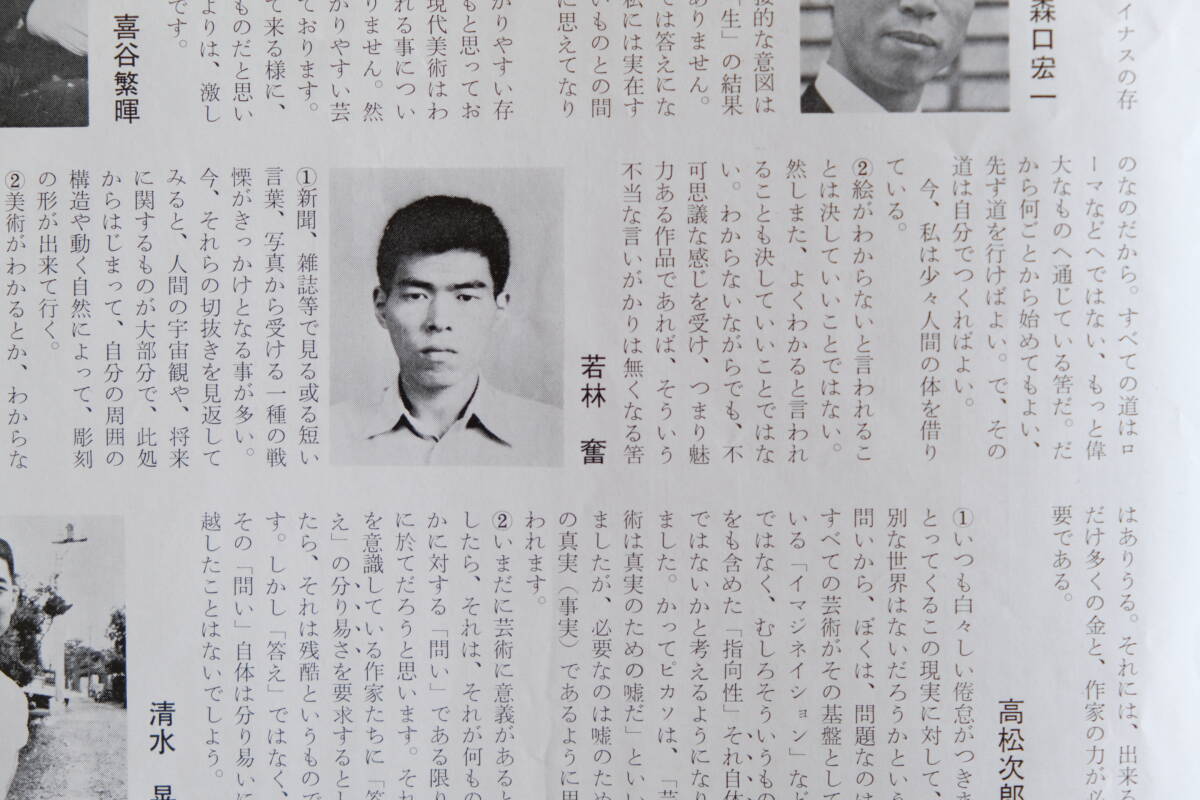 イナスの存
森口宏一
接的な意図は
ありません。
「生」の結果
では答えにな
私には実在す
いものとの間
に思えてなり
かりやすい存
もと思ってお
現代美術はわ
れる事につい
りません。然
かりやすい芸
ております。
て来る様に、
ものだと思い
よりは、激し
です。
喜谷繁暉
のなのだから。すべての道はロ
ーマなどへではない、もっと偉
大なものへ通じている筈だ。だ
から何ごとから始めてもよい、
先ず道を行けばよい。で、その
道は自分でつくればよい。
今、私は少々人間の体を借り
ている。
②絵がわからないと言われるこ
とは決していいことではない。
然しまた、よくわかると言われ
ることも決していいことではな
い。わからないながらでも、不
可思議な感じを受け、つまり魅
力ある作品であれば、そういう
不当な言いがかりは無くなる筈
若林 奮
①新聞、雑誌等で見る或る短い
言葉、写真から受ける一種の戦
慄がきっかけとなる事が多い。
今、それらの切抜きを見返して
みると、人間の宇宙観や、将来
に関するものが大部分で、此処
からはじまって、自分の周囲の
構造や動く自然によって、彫刻
の形が出来て行く。
②美術がわかるとか、わからな
はありうる。それには、出来る
だけ多くの金と、作家の力が必
要である。
高松次郎
①いつも白々しい倦怠がつきま
とってくるこの現実に対して、
別な世界はないだろうかという
問いから、ぼくは、問題なのは
すべての芸術がその基盤として
いる「イマジネイション」など
ではなく、むしろそういうもの
をも含めた「指向性」それ自体
ではないかと考えるようになり
ました。かってピカソは、「芸
術は真実のための嘘だ」といい
ましたが、必要なのは嘘のため
の真実（事実）であるように思
われます。
②いまだに芸術に意義があると
したら、それは、それが何もの
かに対する「問い」である限り
に於てだろうと思います。それ
を意識している作家たちに「答
え」の分り易さを要求するとし
たら、それは残酷というもので
す。しかし「答え」ではなく、
その「問い」自体は分り易いに
越したことはないでしよう。
清水 晃